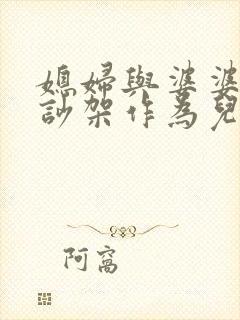 媳婦與婆婆
訬架作為兒
阿窩